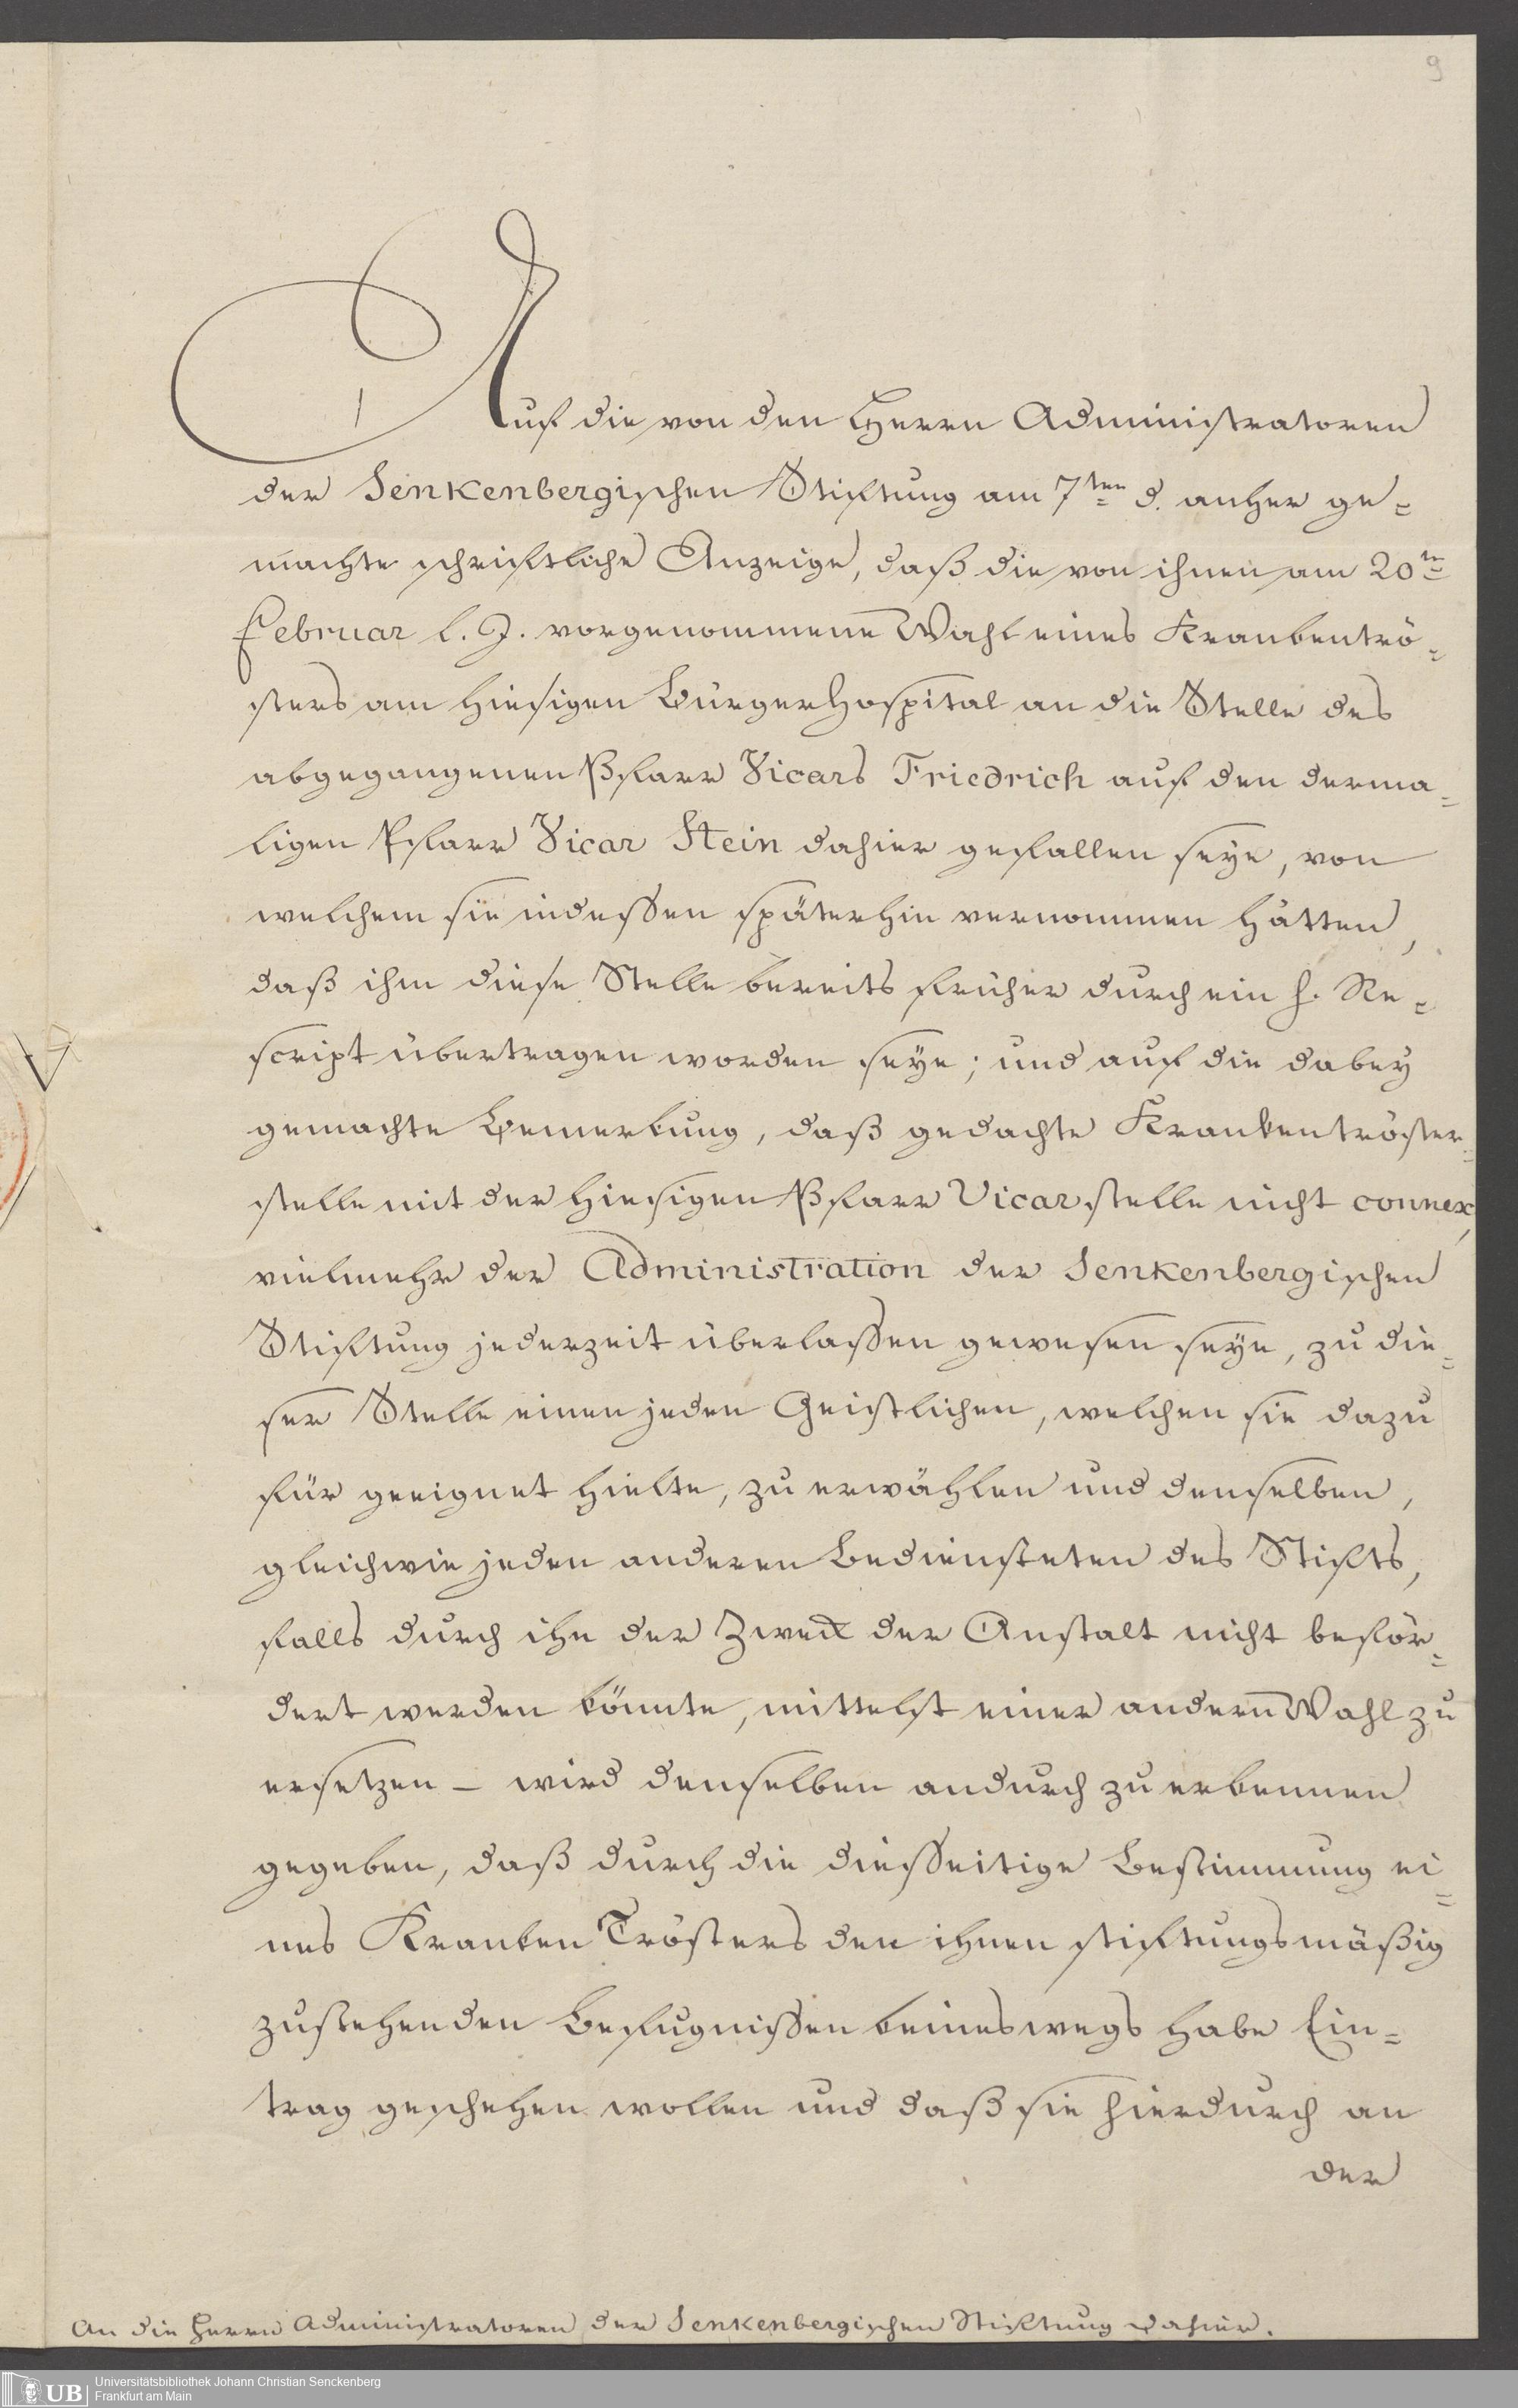 9
Auf die von den Herrn Administratoren
der Senkenbergischen Stiftung am 7ten d. anher ge=
machte schriftliche Anzeige, daß die von ihnen am 20tn
Februar l. J. vorgenommene Wahl eines Krankentrö=
sters am hiesigen Bürgerhospital an die Stelle des
abgegangenen Pfarr Vicars Friedrich auf den derma=
ligen Pfarr Vicar Stein dahier gefallen seye, von
welchem sie indessen späterhin vernommen hätten,
daß ihm diese Stelle bereits früher durch ein h. Re=
script übertragen worden seye; und auf die dabey
gemachte Bemerkung, daß gedachte Krankentröster=
stelle mit der hiesigen Pfarr Vicarstelle nicht connex,
vielmehr der Administration der Senkenbergischen
Stiftung jederzeit überlassen gewesen seye, zu die=
ser Stelle einen jeden Geistlichen, welchen sie dazu
für geeignet hielte, zu erwählen und denselben,
gleichwie jeden anderen Bediensteten des Stifts,
falls durch ihn der Zweck der Anstalt nicht beför=
dert werden könnte, mittelst einer andern Wahl zu
ersetzen – wird denselben andurch zu erkennen
gegeben, daß durch die diesseitige Bestimmung ei=
nes Kranken Trösters den ihnen stiftungsmäßig
zustehenden Befugnissen keineswegs habe Ein=
trag geschehen wollen und daß sie hierdurch an
der
An die Herrn Administratoren der Senkenbergischen Stiftung dahier.
UB Universitätsbibliothek Johann Christian Senckenberg
Frankfurt am Main